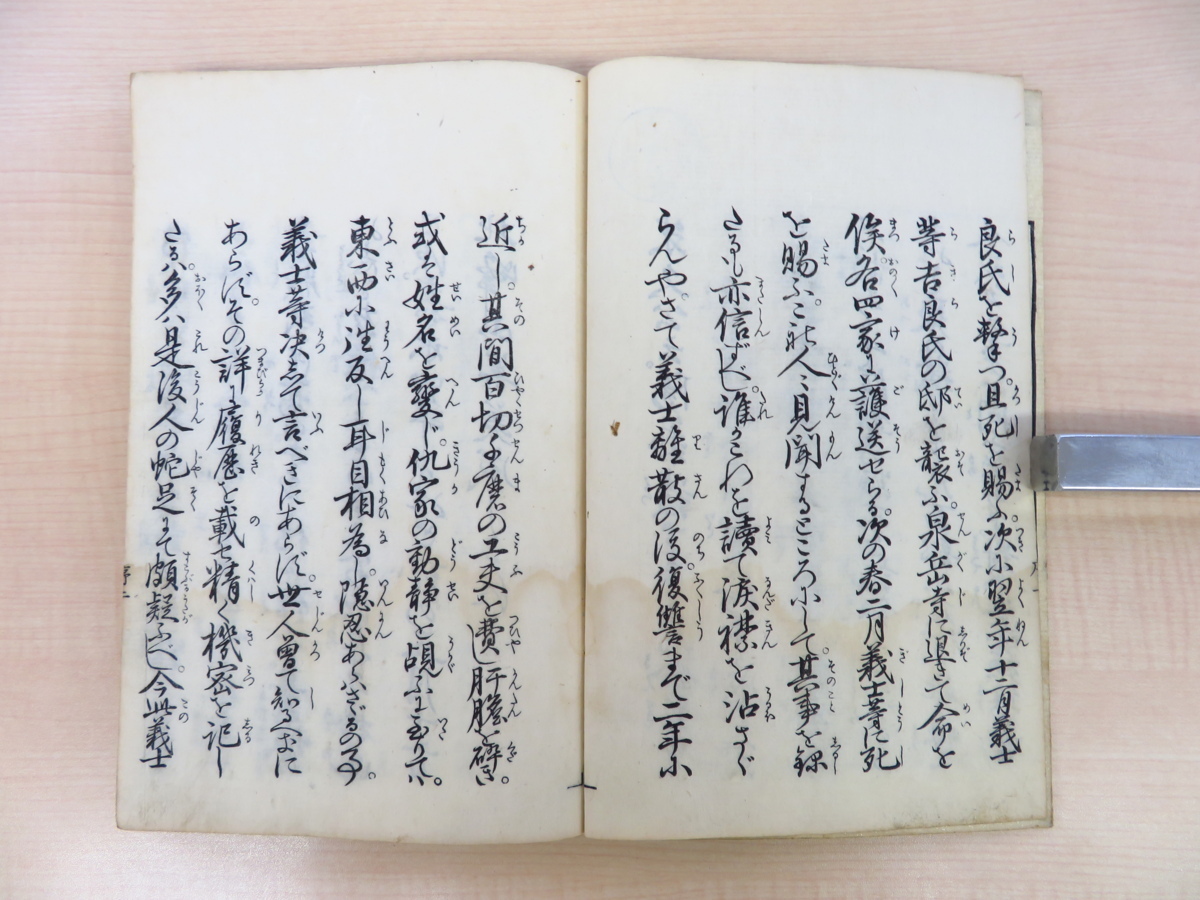 良氏を撃つ。且死を賜ふ。次に翌年十二月義士
等吉良氏の邸を襲ふ。泉岳寺に退きて命を
俟。各四家に護送せらる。次の春二月義士等に死
を賜ふ。これ人々見聞するところにして。其事を録
たるも亦信ずべし。誰かこれを讀て涙襟を沾さゞ
らんや。さて義士離散の後。復讐まで二年に
近し。其間百切千磨の工夫を費し肝膽を碎き。
或は姓名を變じ。仇家の動静を覘ふに至りては。
東西に往反し耳目相為し。隠忍あらざるの事。
義士等決して言べきにあらず。世人曽て知るべきに
あらず。その詳に履歴を載せ精く機密を記し
たるハ。多くハ是後人の蛇足にて頗疑ふべし。今此義士
序二